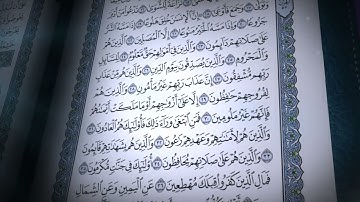 جَزُوعًا ٢٠ وَإِذَا مَسَّهُ ٱلْخَيْرُ مَنُوعًا ٢١ إِلَّا ٱلْمُصَلِّينَ ٢٢ ٱلَّذِينَ هُمْ
عَلَىٰ صَلَاتِهِمْ دَآئِمُونَ ٢٣ وَٱلَّذِينَ فِىٓ أَمْوَٰلِهِمْ حَقٌّ مَّعْلُومٌ ٢٤ لِّلسَّآئِلِ
وَٱلْمَحْرُومِ ٢٥ وَٱلَّذِينَ يُصَدِّقُونَ بِيَوْمِ ٱلدِّينِ ٢٦ وَٱلَّذِينَ هُم مِّنْ عَذَابِ
رَبِّهِم مُّشْفِقُونَ ٢٧ إِنَّ عَذَابَ رَبِّهِمْ غَيْرُ مَأْمُونٍ ٢٨ وَٱلَّذِينَ هُمْ
لِفُرُوجِهِمْ حَٰفِظُونَ ٢٩ إِلَّا عَلَىٰٓ أَزْوَٰجِهِمْ أَوْ مَا مَلَكَتْ أَيْمَٰنُهُمْ
فَإِنَّهُمْ غَيْرُ مَلُومِينَ ٣٠ فَمَنِ ٱبْتَغَىٰ وَرَآءَ ذَٰلِكَ فَأُو۟لَٰٓئِكَ هُمُ ٱلْعَادُونَ ٣١
وَٱلَّذِينَ هُمْ لِأَمَٰنَٰتِهِمْ وَعَهْدِهِمْ رَٰعُونَ ٣٢ وَٱلَّذِينَ هُم بِشَهَٰدَٰتِهِمْ قَآئِمُونَ
٣٣ وَٱلَّذِينَ هُمْ عَلَىٰ صَلَاتِهِمْ يُحَافِظُونَ ٣٤ أُو۟لَٰٓئِكَ فِى جَنَّٰتٍ مُّكْرَمُونَ ٣٥
فَمَالِ ٱلَّذِينَ كَفَرُوا۟ قِبَلَكَ مُهْطِعِينَ ٣٦ عَنِ ٱلْيَمِينِ وَعَنِ ٱلشِّمَالِ